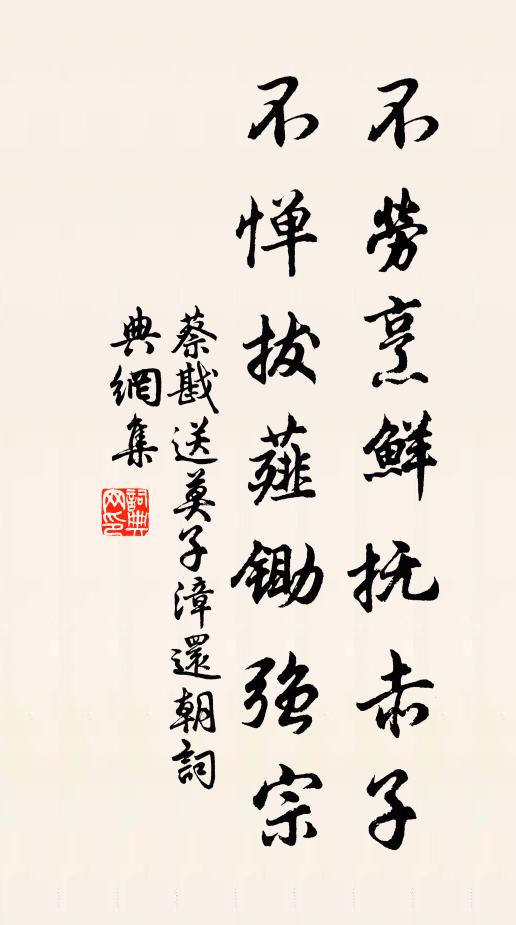 不劳烹鮮抚赤子
不惮拔薤锄强宗
蔡戡送莫子漳還朝詞
典網集
詞典网印